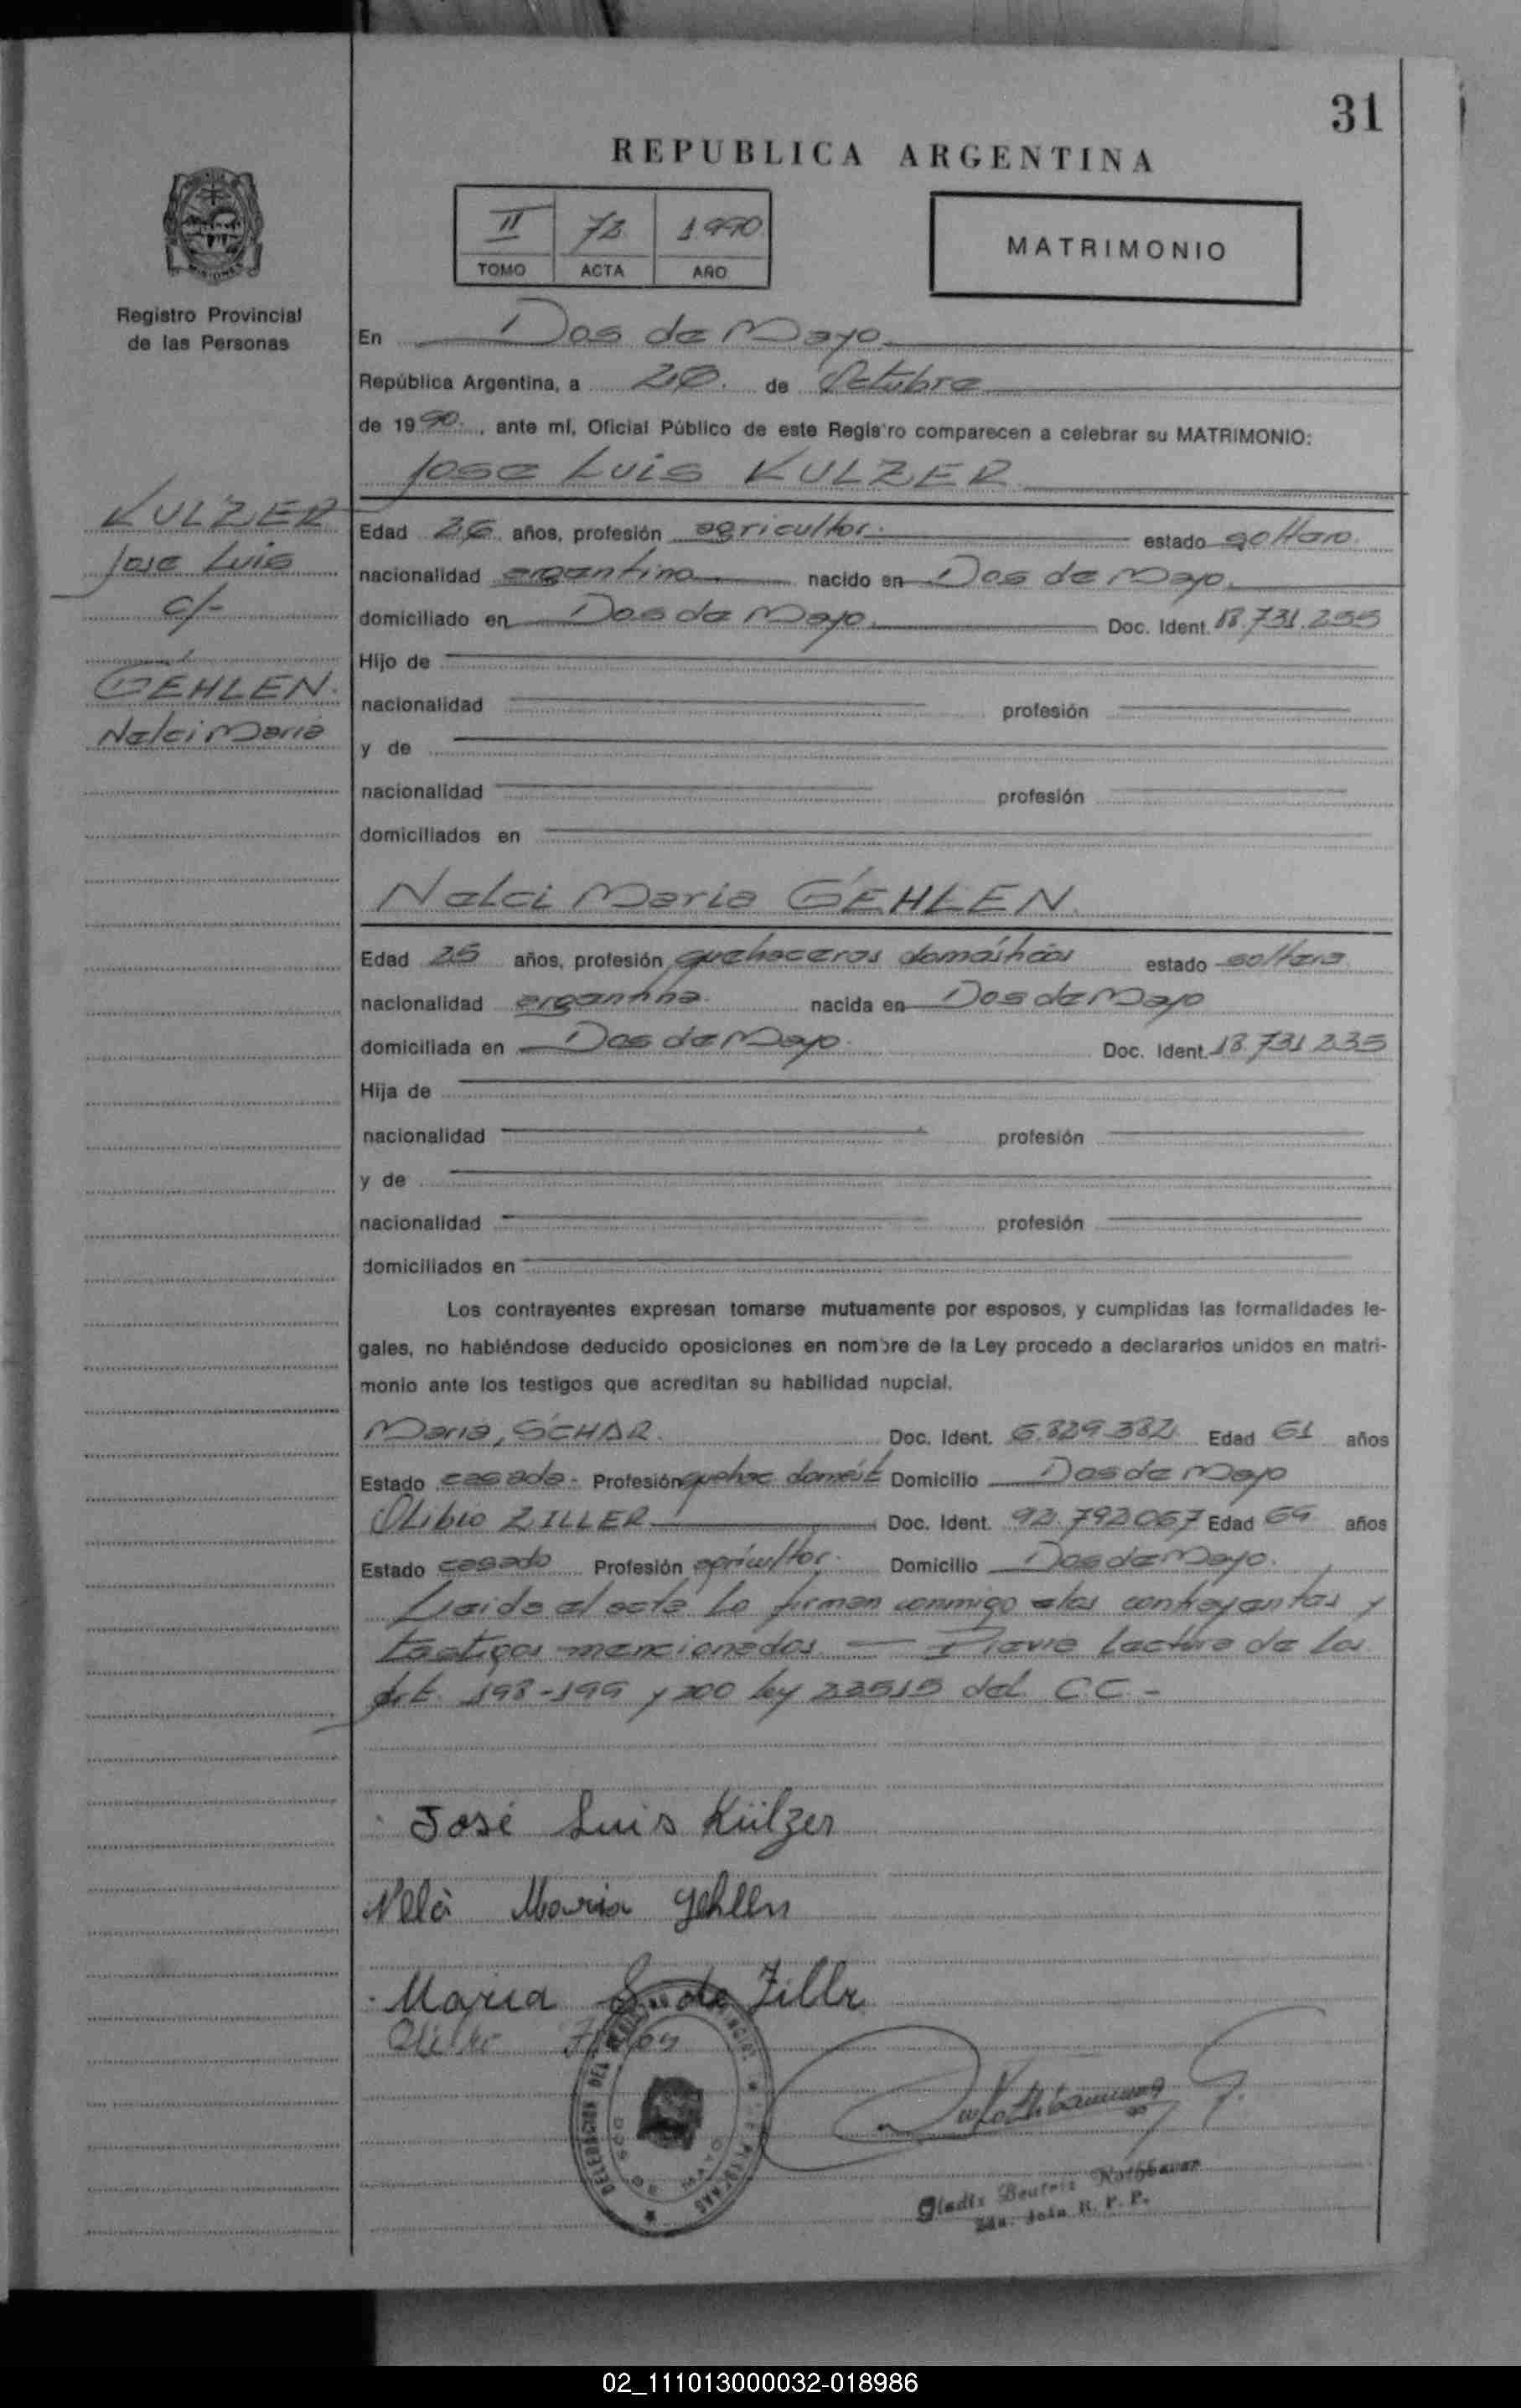 31
REPUBLICA ARGENTINA
II 1990
TOMO ACTA AÑO
MATRIMONIO
MISIONES
Registro Provincial
de las Personas
En Dos de Mayo
República Argentina, a de Octubre
de 1990, ante mí, Oficial Público de este Regis'ro comparecen a celebrar su MATRIMONIO:
Jose Luis KULZER
KULZER
Jose Luis
c/-
GEHLEN.
Nelci Maria
Edad 26 años, profesión agricultor. estado soltero.
nacionalidad argentina nacido en Dos de Mayo.
domiciliado en Dos de Mayo. Doc. Ident. 18.731.255
Hijo de
nacionalidad profesión
y de
nacionalidad profesión
domiciliados en
Nelci Maria GEHLEN.
Edad 25 años, profesión quehaceres domésticos estado soltera
nacionalidad argentina. nacida en Dos de Mayo
domiciliada en Dos de Mayo. Doc. Ident. 18.731.235
Hija de
nacionalidad profesión
y de
nacionalidad profesión
domiciliados en
Los contrayentes expresan tomarse mutuamente por esposos, y cumplidas las formalidades le-
gales, no habiéndose deducido oposiciones en nombre de la Ley procedo a declararlos unidos en matri-
monio ante los testigos que acreditan su habilidad nupcial.
Maria, SCHAR. Doc. Ident. 6.829.382 Edad 61 años
Estado casada- Profesión quehac domést Domicilio Dos de Mayo
Olibio ZILLER Doc. Ident. 92.792.067 Edad años
Estado casado Profesión agricultor. Domicilio Dos de Mayo.
Leida el acta la firman conmigo los contrayentes y
testigos mencionados — Previa lectura de los
Art. 198-199 y 200 ley 23515 del C.C.-
José Luis Külzer
Maria Gehlen
Maria S. de Ziller
DELEGACION DEL REGISTRO PROVINCIAL DE LAS PERSONAS
DOS DE MAYO
Gladis Beatriz Rothbauer
R. P. P.
02_111013000032-018986